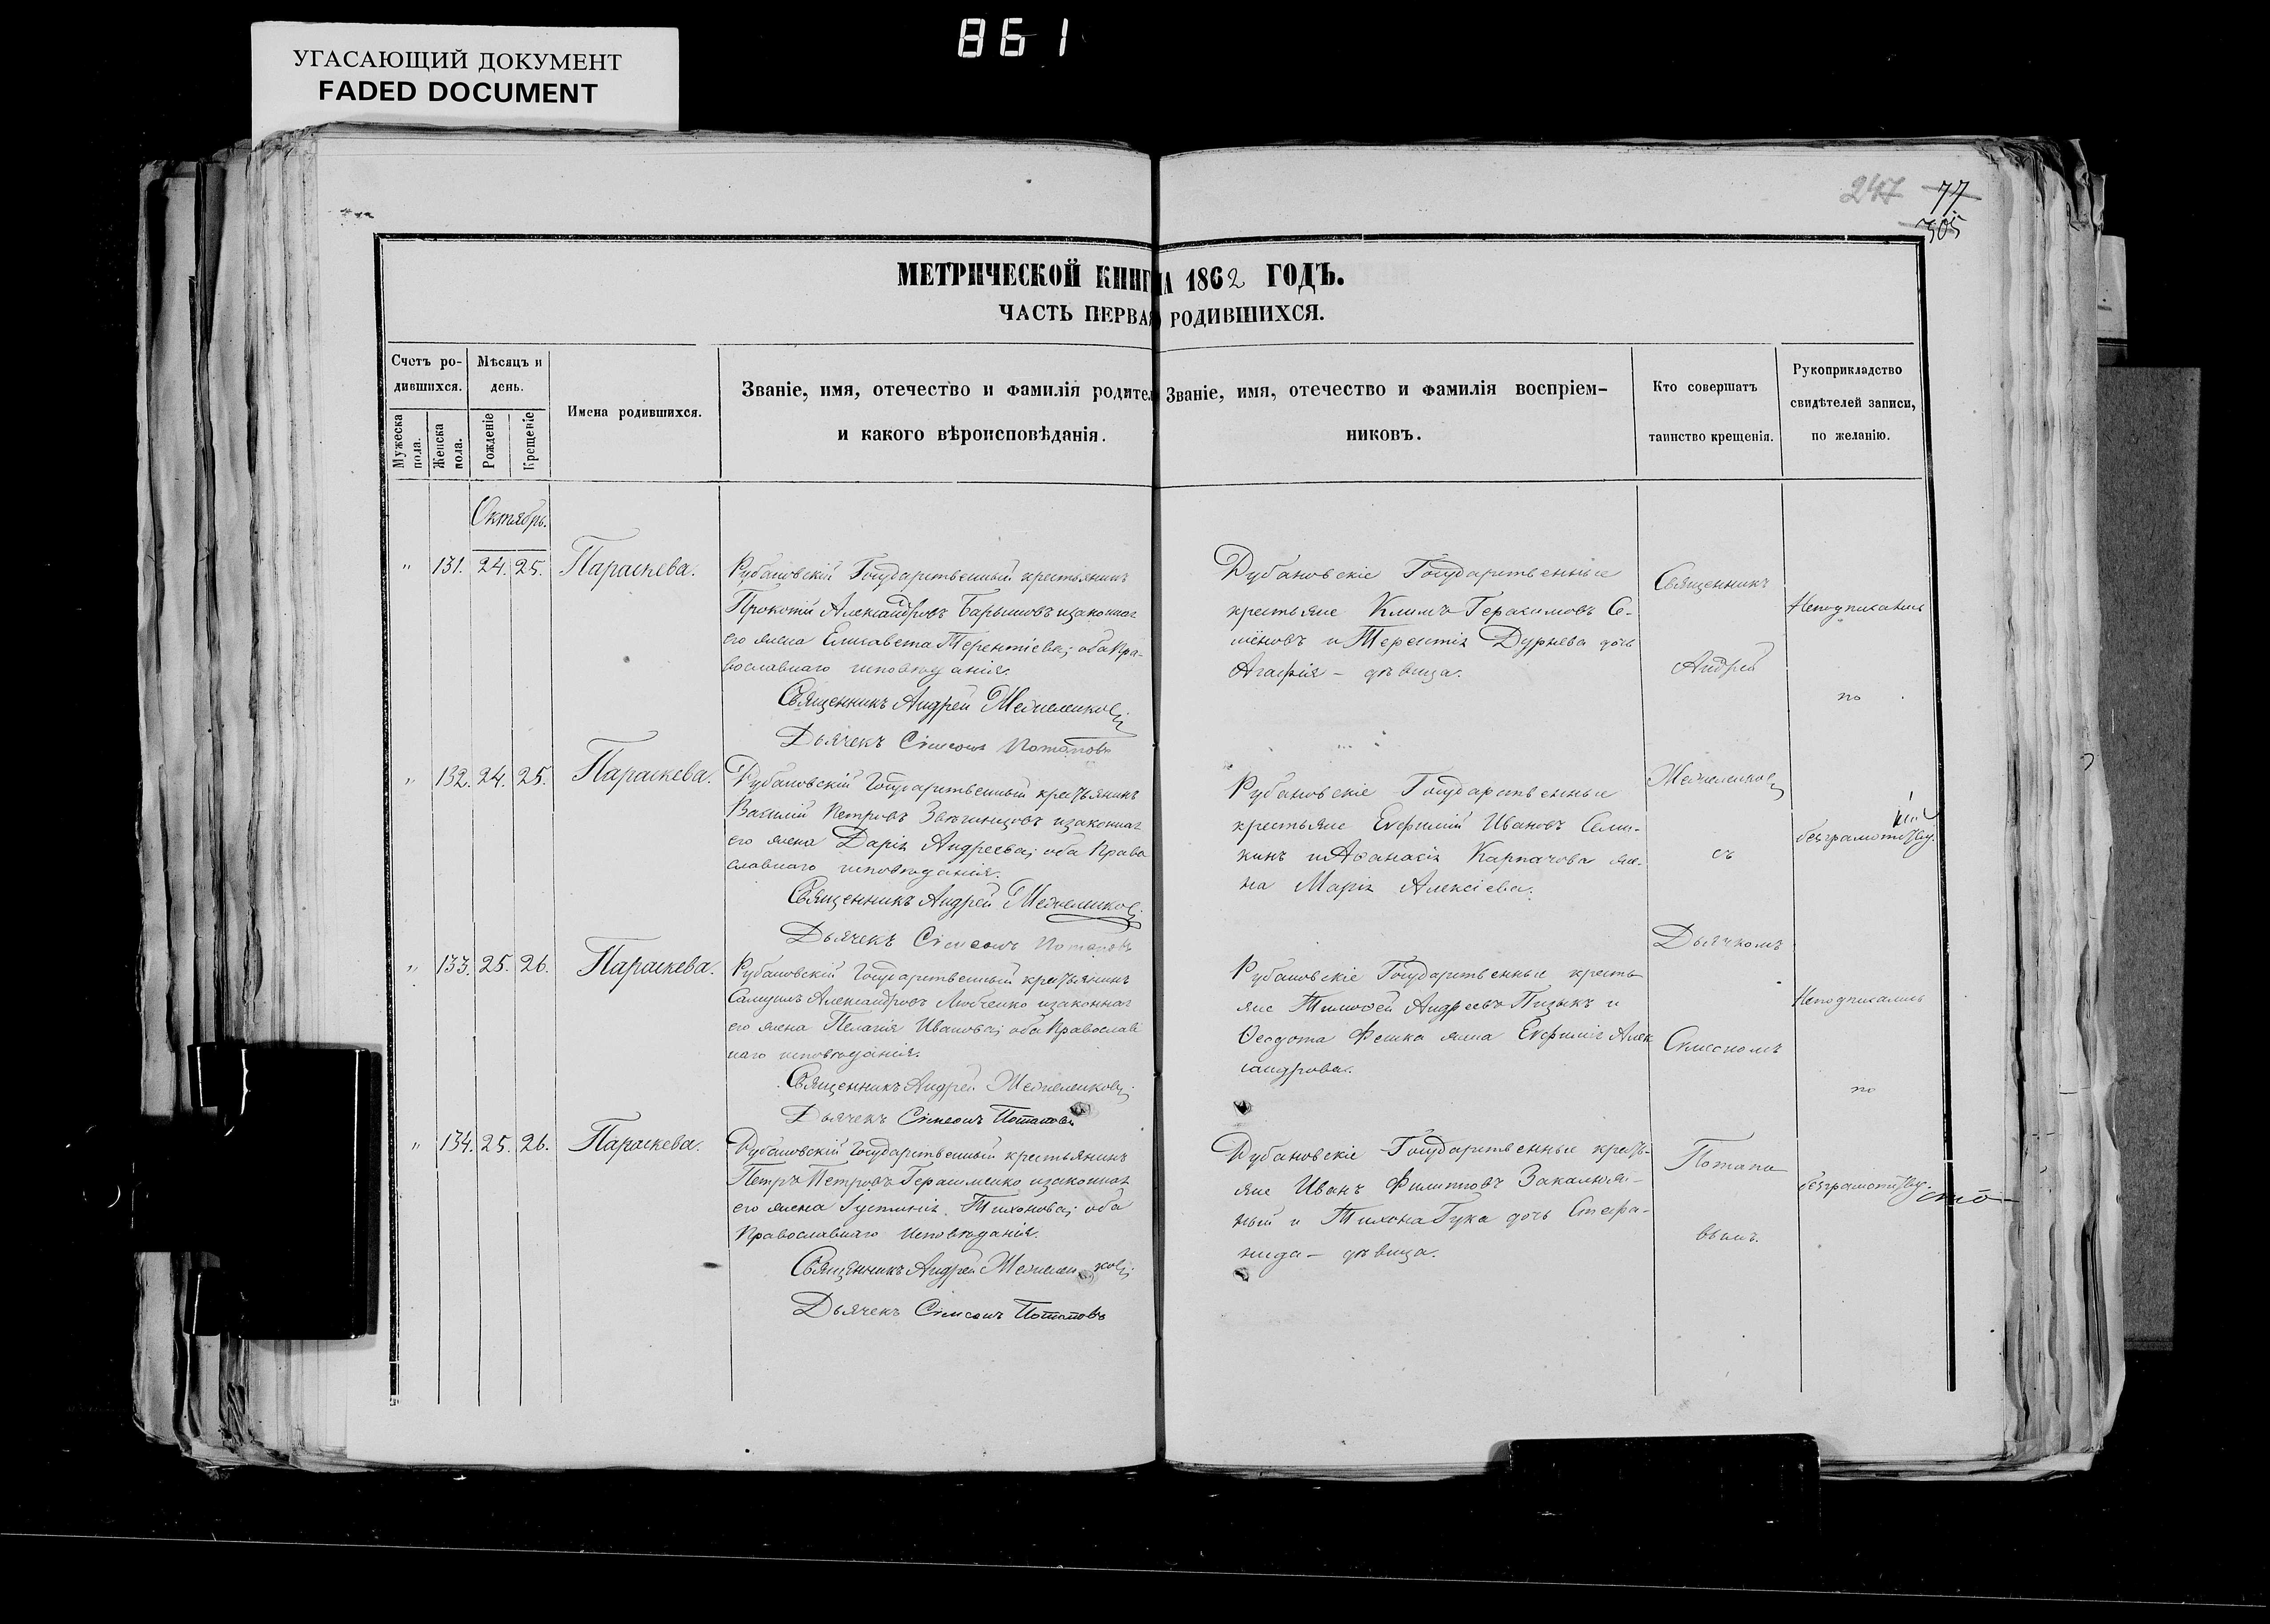 861
УГАСАЮЩИЙ ДОКУМЕНТ
FADED DOCUMENT
247 77
305
МЕТРИЧЕСКОЙ КНИГ НА 1862 ГОДЪ.
ЧАСТЬ ПЕРВАЯ РОДИВШИХСЯ.
Счетъ родившихся.
Мужеска пола.
Женска пола.
Мѣсяцъ и день.
Рожденіе
Крещеніе
Имена родившихся.
Званіе, имя, отечество и фамилія родител
и какого вѣроисповѣданія.
Званіе, имя, отечество и фамилія воспріем-
никовъ.
Кто совершатъ
таинство крещенія.
Рукоприкладство
свидѣтелей записи,
по желанію.
Октябрь.
" 131. 24. 25. Параскева.
Рубановскій Государственный крестьянинъ
Прокопій Александровъ Барышовъ изаконная
его жена Елисавета Терентіева; оба Пра-
вославнаго исповѣданія.
Священникъ Андрей
Дьячекъ Сѵмеонъ Потаповъ
Рубановскіе Государственные
крестьяне Климъ Герасимовъ Се-
мёновъ и Терентія Дурнева дочь
Агафія – дѣвица.
" 132. 24. 25. Параскева.
Рубановскій Государственный крестьянинъ
Василій Петровъ Звѣгинцовъ изаконная
его жена Дарія Андреева; оба Право
славнаго исповѣданія.
Священникъ Андрей
Дьячекъ Сѵмеонъ Потаповъ
Рубановскіе Государственные
крестьяне Евфимій Ивановъ
и Аѳанасія Карпачова же-
на Марія Алексіева.
" 133. 25. 26. Параскева.
Рубановскій Государственный крестьянинъ
Самуилъ Александровъ Любченко изаконная
его жена Пелагія Иванова; оба Православ
наго исповѣданія.
Священникъ Андрей
Дьячекъ Сѵмеонъ Потаповъ
Рубановскіе Государственные кресть
яне Тимоѳей Андреевъ и
Ѳеодота Фешка жена Евфимія Алек
сандрова.
" 134. 25. 26. Параскева.
Рубановскій Государственный крестьянинъ
Петръ Петровъ Герасименко изаконная
его жена Іустинія Тихонова; оба
Православнаго Исповѣданія.
Священникъ Андрей
Дьячекъ Сѵмеонъ Потаповъ
Рубановскіе Государственные кресть-
яне Иванъ Филипповъ
и Тихона Гука дочь Стефа-
нида – дѣвица.
Священникъ
Андрей
съ
Дьячкомъ
Сѵмеономъ
Потапо
вымъ.
Неподписались
по
безграмотству.
Неподписались
по
безграмотству.